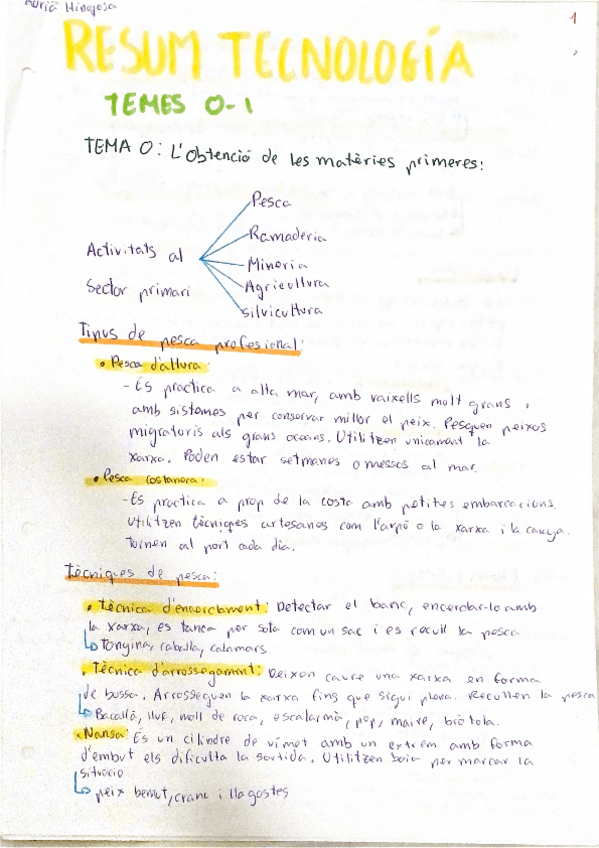 Adrià Hinojosa
1
RESUM TECNOLOGÍA
TEMES 0-1
TEMA 0: L'obtenció de les matèries primeres:
Pesca
Ramaderia
Activitats al
Mineria
Sector primari
Agricultura
Silvicultura
Tipus de pesca profesional:
• Pesca d'altura:
- Es practica a alta mar, amb vaixells molt grans,
amb sistemes per conservar millor el peix. Pesquen peixos
migratoris als grans oceans. Utilitzen unicament la
xarxa. Poden estar setmanes o messos al mar.
• Pesca costanera:
- Es practica a prop de la costa amb petites embarcacions.
Utilitzen tècniques artesanes com l'arpó o la xarxa i la canya.
Tornen al port cada dia.
Tècniques de pesca:
• Tècnica d'encerclament: Detectar el banc, encerclar-lo amb
la xarxa, es tanca per sota com un sac i es recull la pesca
Tonyina, caballa, calamars
• Tècnica d'arrossegament: Deixen caure una xarxa en forma
de bossa. Arrosseguen la xarxa fins que sigui plena. Recullen la pesca
Bacallà, lluç, moll de roca, escalarmà, pop, maire, bròtola.
• Nansa: És un cilindre de vímet amb un extrem amb forma
d'embut els dificulta la sortida. Utilitzen boia per marcar la
situació
peix benut, cranc i llagostes